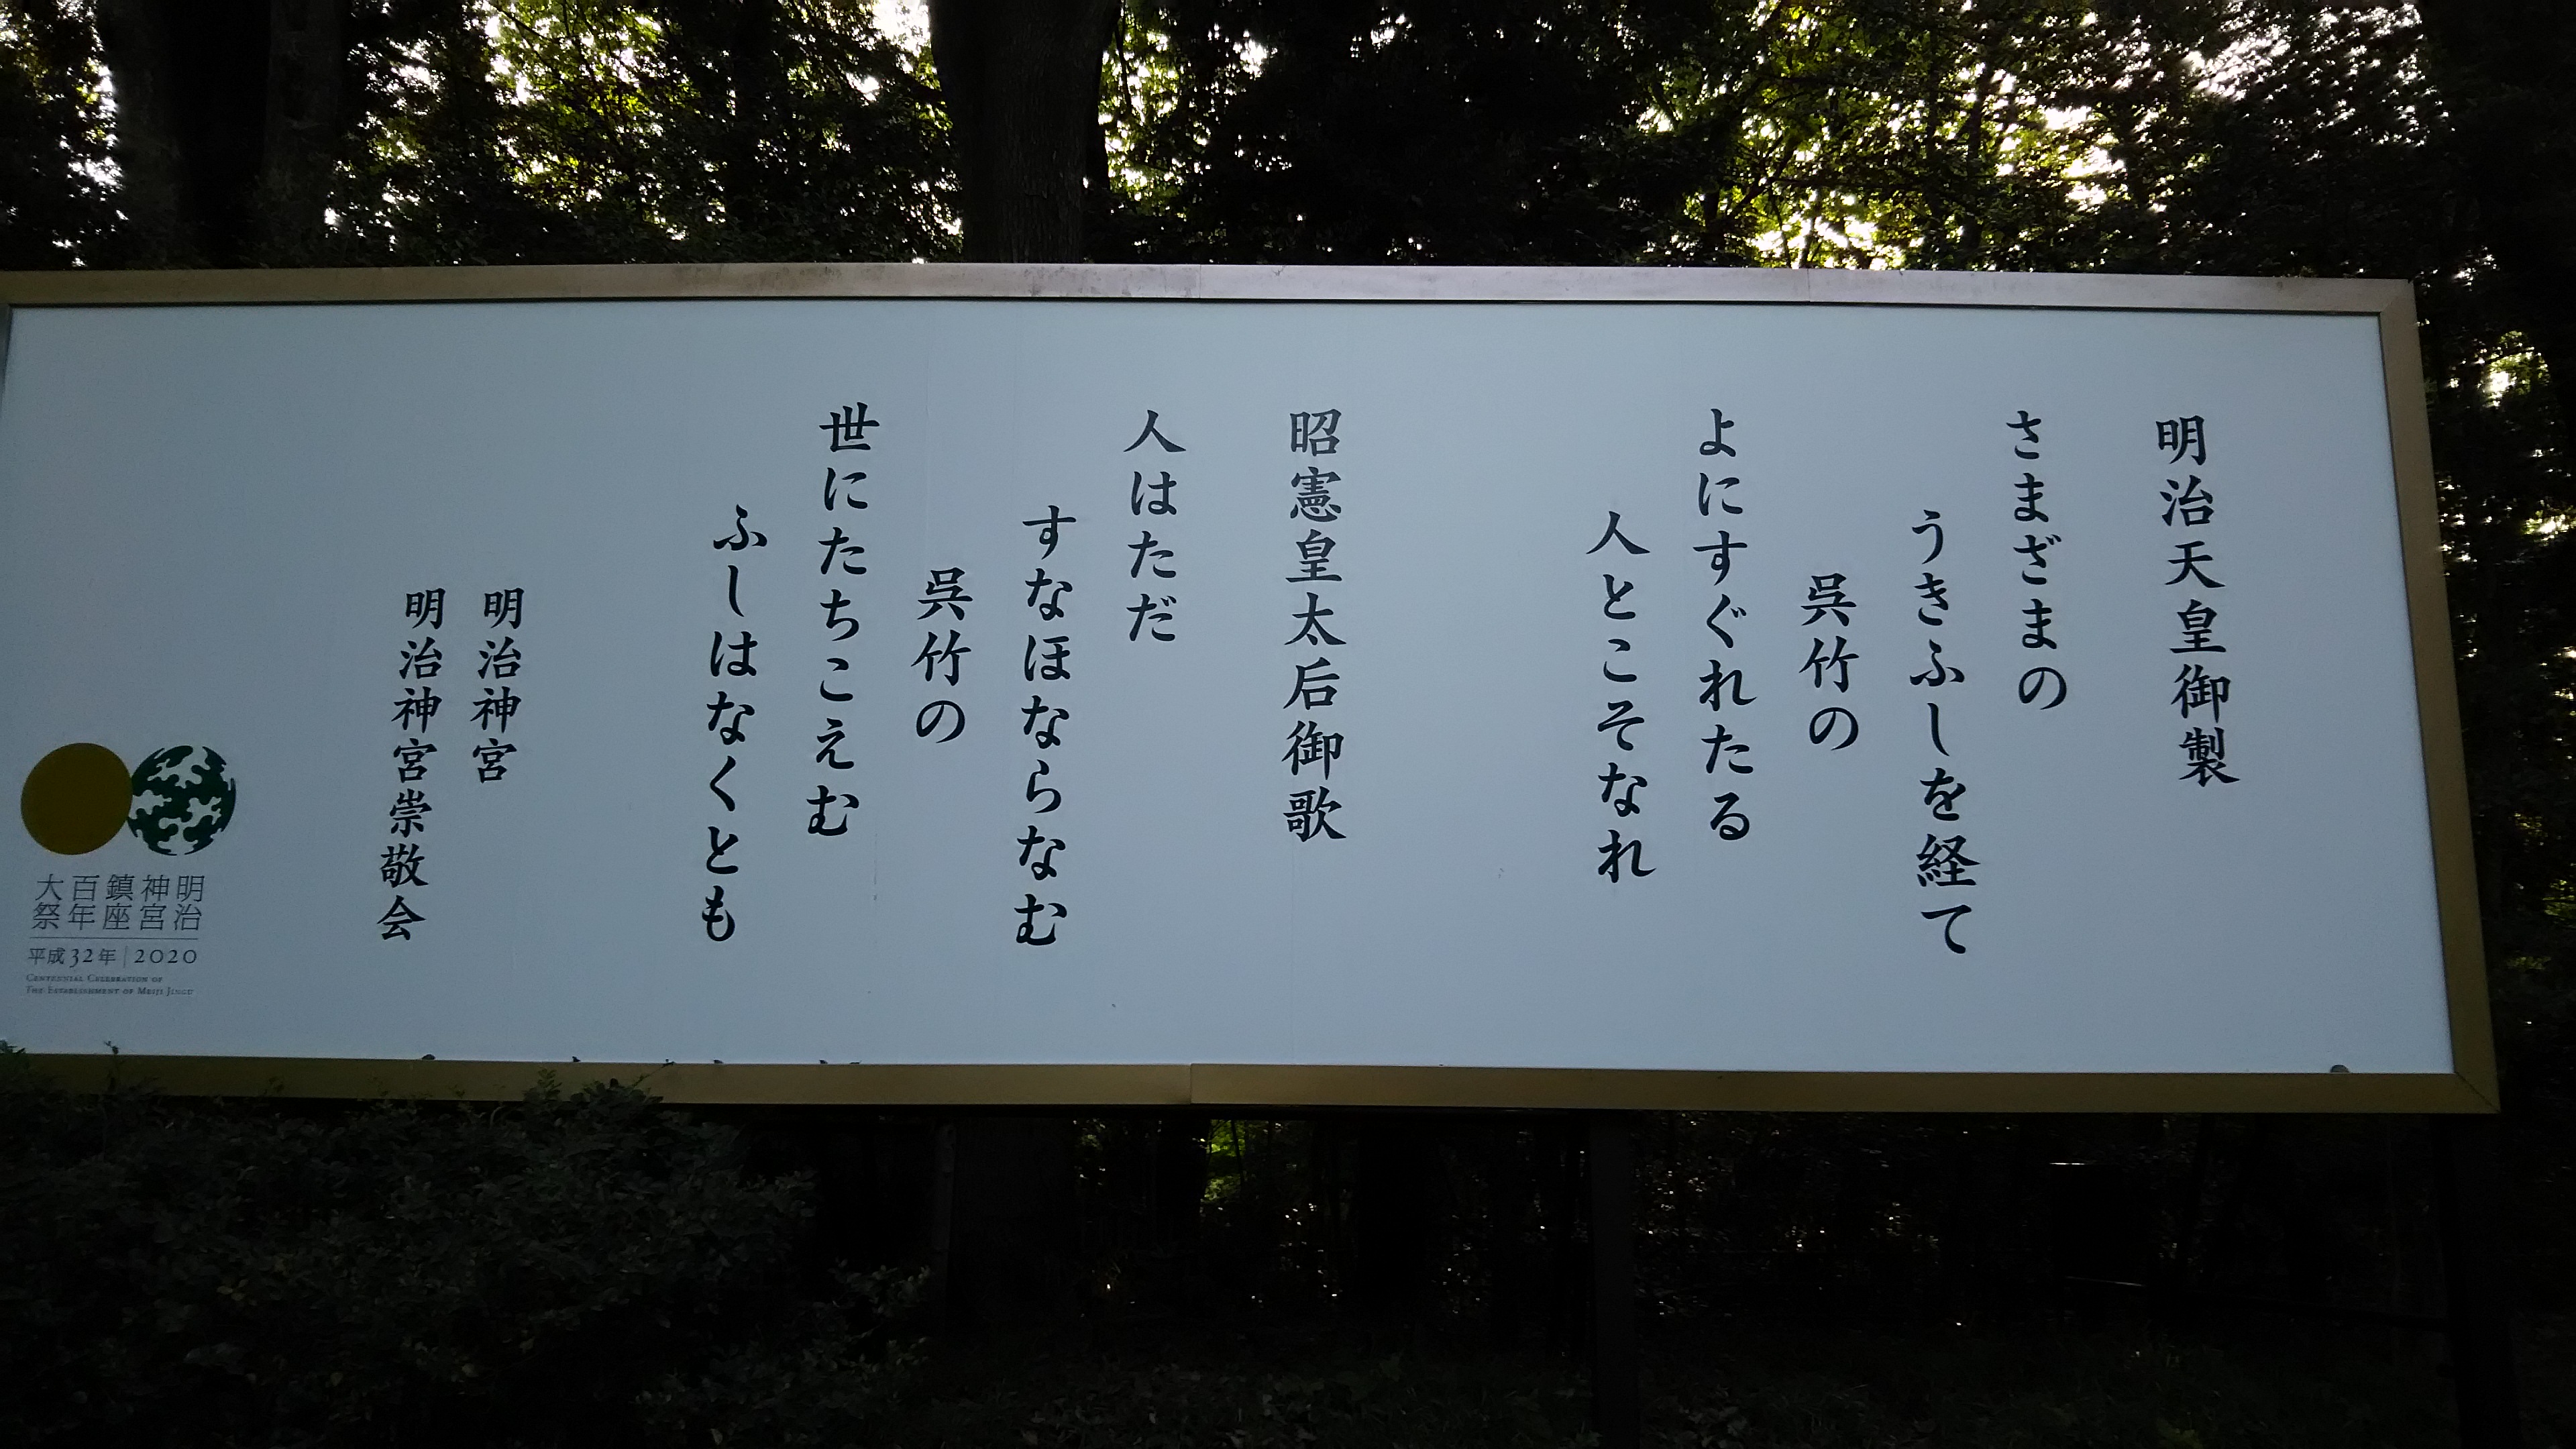 明治天皇御製
さまざまの
うきふしを経て
呉竹の
よにすぐれたる
人とこそなれ
昭憲皇太后御歌
人はただ
すなほならなむ
呉竹の
世にたちこえむ
ふしはなくとも
明治神宮
明治神宮崇敬会
明治
神宮
鎮座
百年
大祭
平成32年 | 2020
Centennial Celebration of
The Establishment of Meiji Jingu